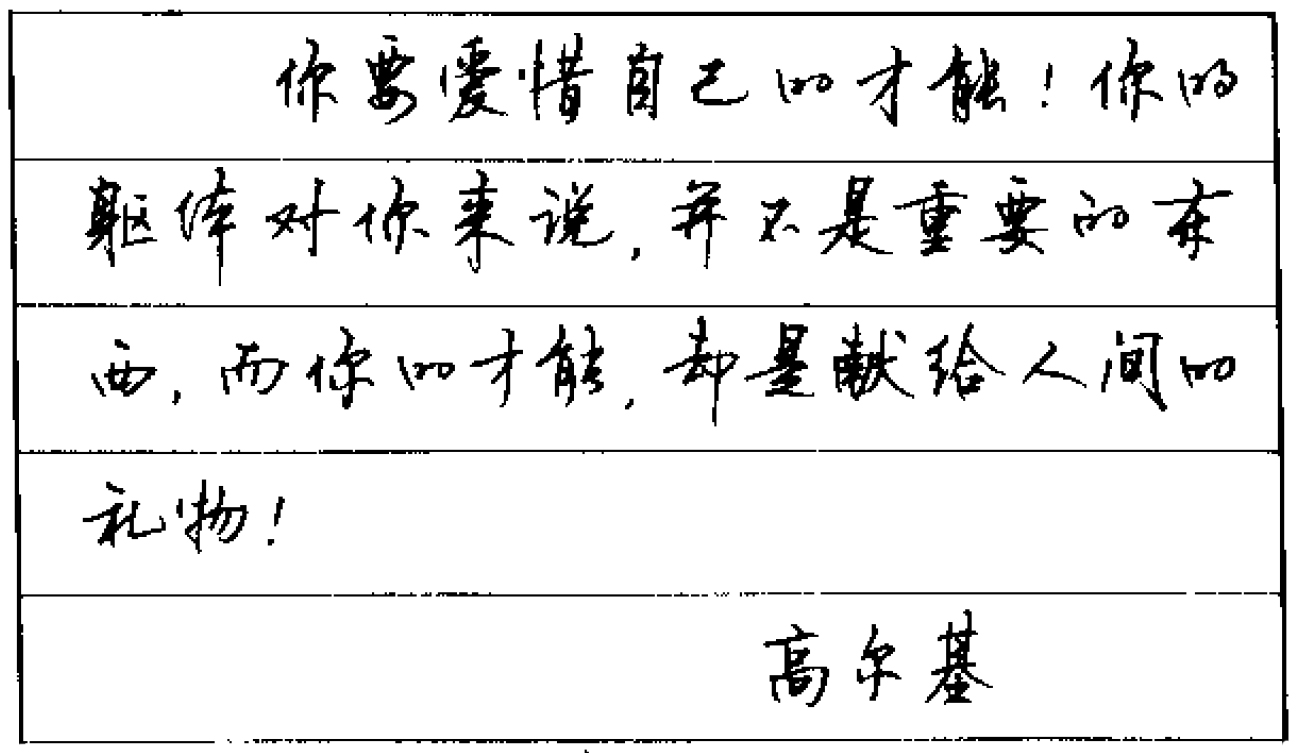 你要爱惜自己的才能！你的
躯体对你来说，并不是重要的东
西，而你的才能，却是献给人间的
礼物！
高尔基